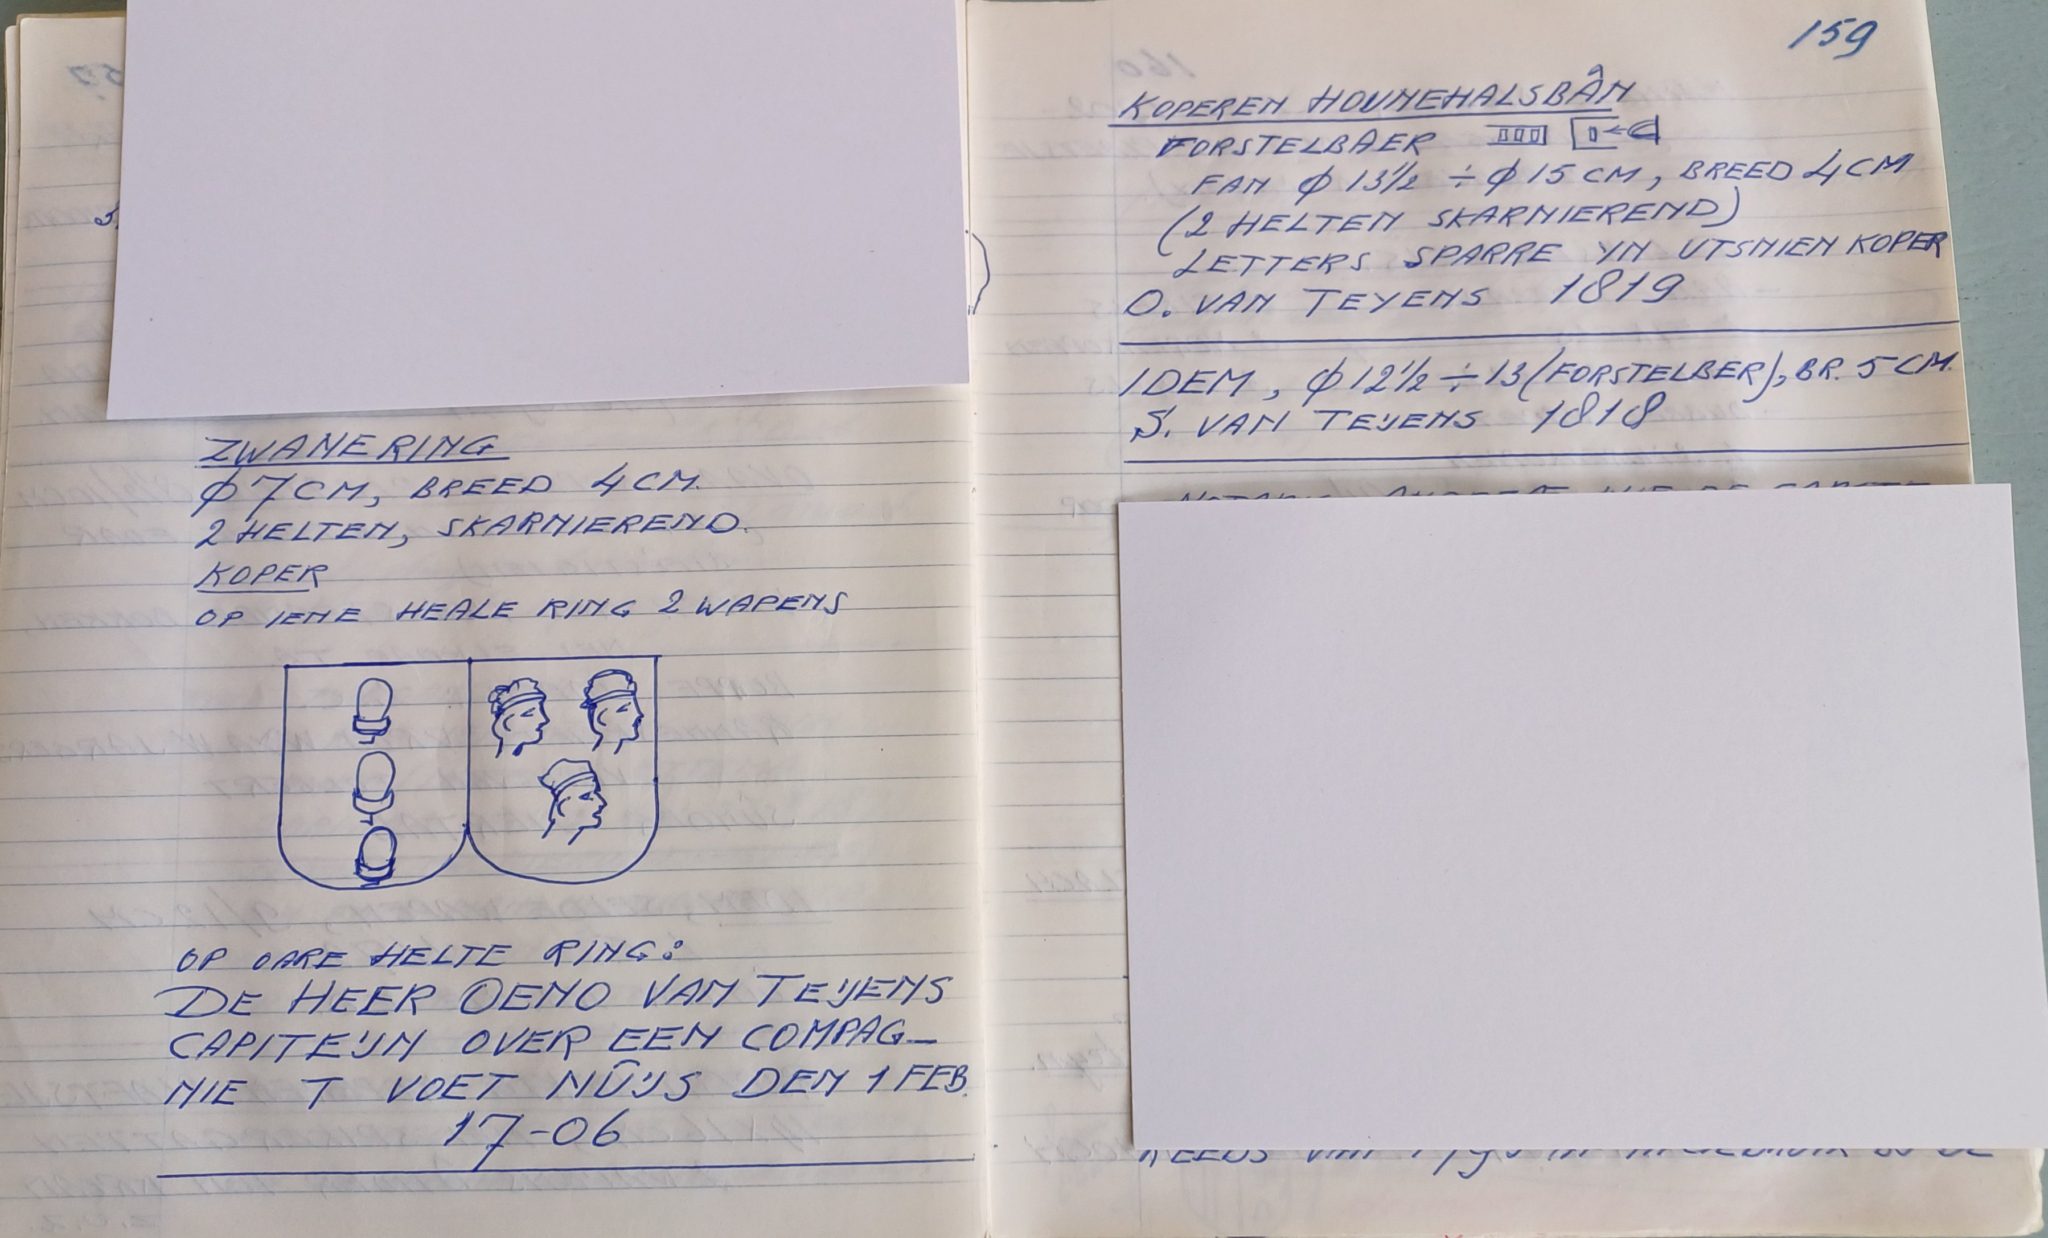 ZWANERING
φ 7 CM, BREED 4 CM.
2 HELTEN, SKARNIEREND.
KOPER
OP IENE HEALE RING 2 WAPENS
OP OARE HELTE RING:
DE HEER OENO VAN TEIJENS
CAPITEIJN OVER EEN COMPAG-
NIE T VOET NÛIJS DEN 1 FEB.
17-06
159
KOPEREN HOUNEHALSBÂN
FORSTELBAER
FAN φ 13½ ÷ φ 15 CM, BREED 4 CM
(2 HELTEN SKARNIEREND)
LETTERS SPARRE YN UTSNIEN KOPER
O. VAN TEYENS 1819
IDEM, φ 12½ ÷ 13 (FORSTELBER), BR. 5 CM.
S. VAN TEIJENS 1818